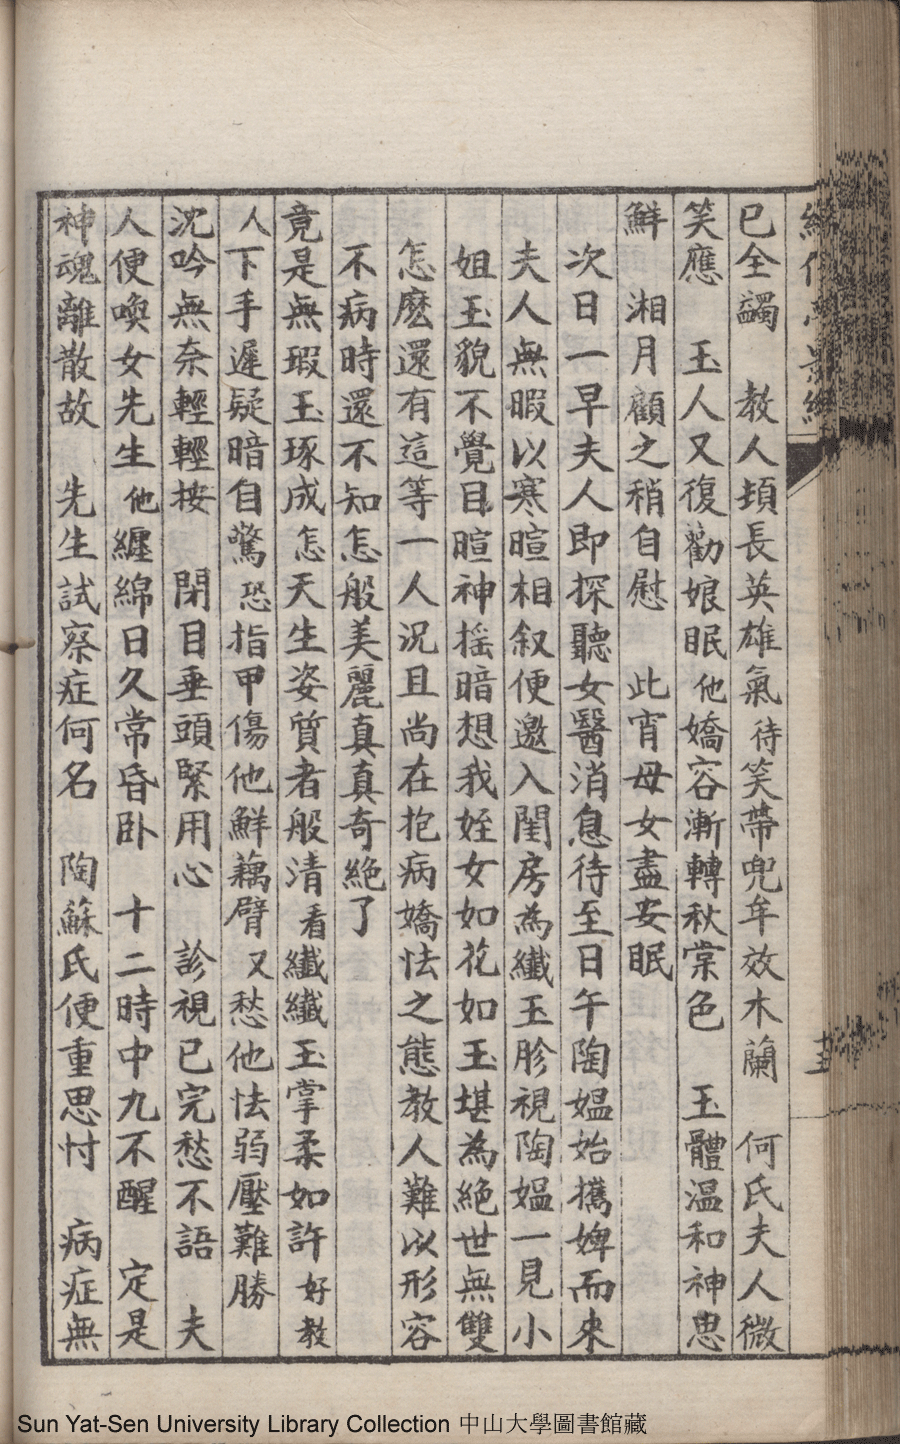 已全蠲　教人頓長英雄氣待笑帶兜牟效木蘭　何氏夫人微
笑應　玉人又復勸娘眠他嬌容漸轉秋棠色　玉體溫和神思
鮮　湘月顧之稍自慰　此宵母女盡安眠
次日一早夫人即探聽女醫消息待至日午陶媪始攜婢而来
夫人無暇以寒暄相叙便邀入閨房為纖玉胗視陶媪一見小
姐玉貌不覺目暄神摇暗想我姪女如花如玉堪為絕世無雙
怎麽還有這等一人況且尚在抱病嬌怯之態教人難以形容
不病時還不知怎般美麗真真奇絕了
竟是無瑕玉琢成怎天生姿質者般清看纖纖玉掌柔如許好教
人下手遲疑暗自驚恐指甲傷他鮮藕臂又愁他怯弱壓難勝
沈吟無奈輕輕按　閉目垂頭緊用心　診視已完愁不語　夫
人便喚女先生他纏綿日久常昏卧　十二時中九不醒　定是
神魂離散故　先生試察症何名　陶蘇氏便重思忖　病症無
十五
Sun Yat-Sen University Library Collection 中山大學圖書館藏